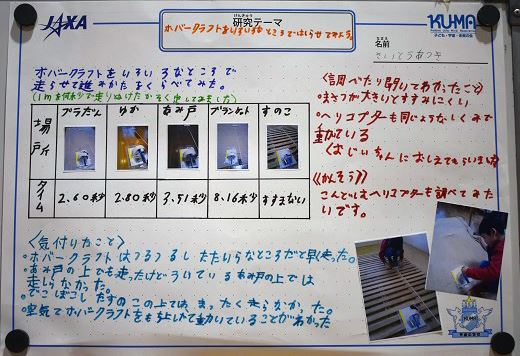 JAXA
けんきゅう
研究テーマ
ホバークラフトをいろいろなところではしらせてみよう。
KUMA
子ども・宇宙・未来の会
なまえ
名前
さいとうあつき
ホバークラフトをいろいろなところで
走らせて進みかたをくらべてみた。
(1mを何秒で走りぬけたかそく定してみました)
場所
プラだん
ゆか
あみ戸
ブランケット
すのこ
タイム
2.60秒
2.80秒
3.51秒
8.16秒
すすまない
〈気付りたこと〉
・ホバークラフトはつるつるしたたいらなところだと早く走った。
・あみ戸の上でも走ったけどういているあみ戸の上では
走らなかった。
・でこぼこしたすのこの上では、まったく走らなかった。
・空気でホバークラフトをもち上して動いていることがわかった
〈調べたり聞いてわかったこと〉
・まさつが大きいとすすみにくい
・ヘリコプターも同じようなしくみで
動いている
(おじいちゃんにおしえてもらいました)
《かんそう》
こんどはヘリコプターも調べてみた
いです。
KUMA